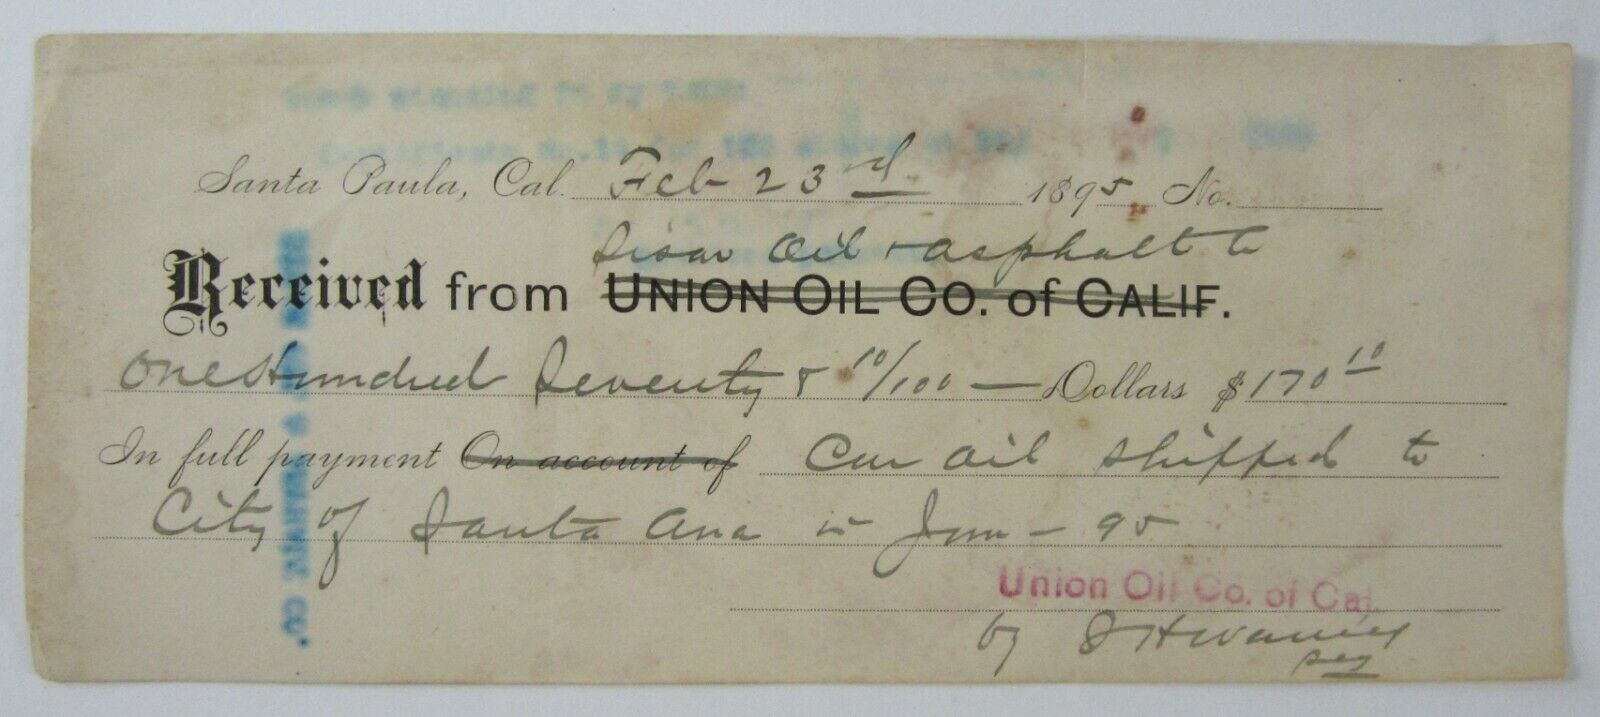 Santa Paula, Cal. Feb 23rd 1895 No.
Sisar Oil & Asphalt Co
Received from UNION OIL CO. of CALIF.
One Hundred Seventy & 10/100 — Dollars $170 10
In full payment On account of Car Oil shipped to
City of Santa Ana in Jan - 95
Union Oil Co. of Cal.
by
Sec